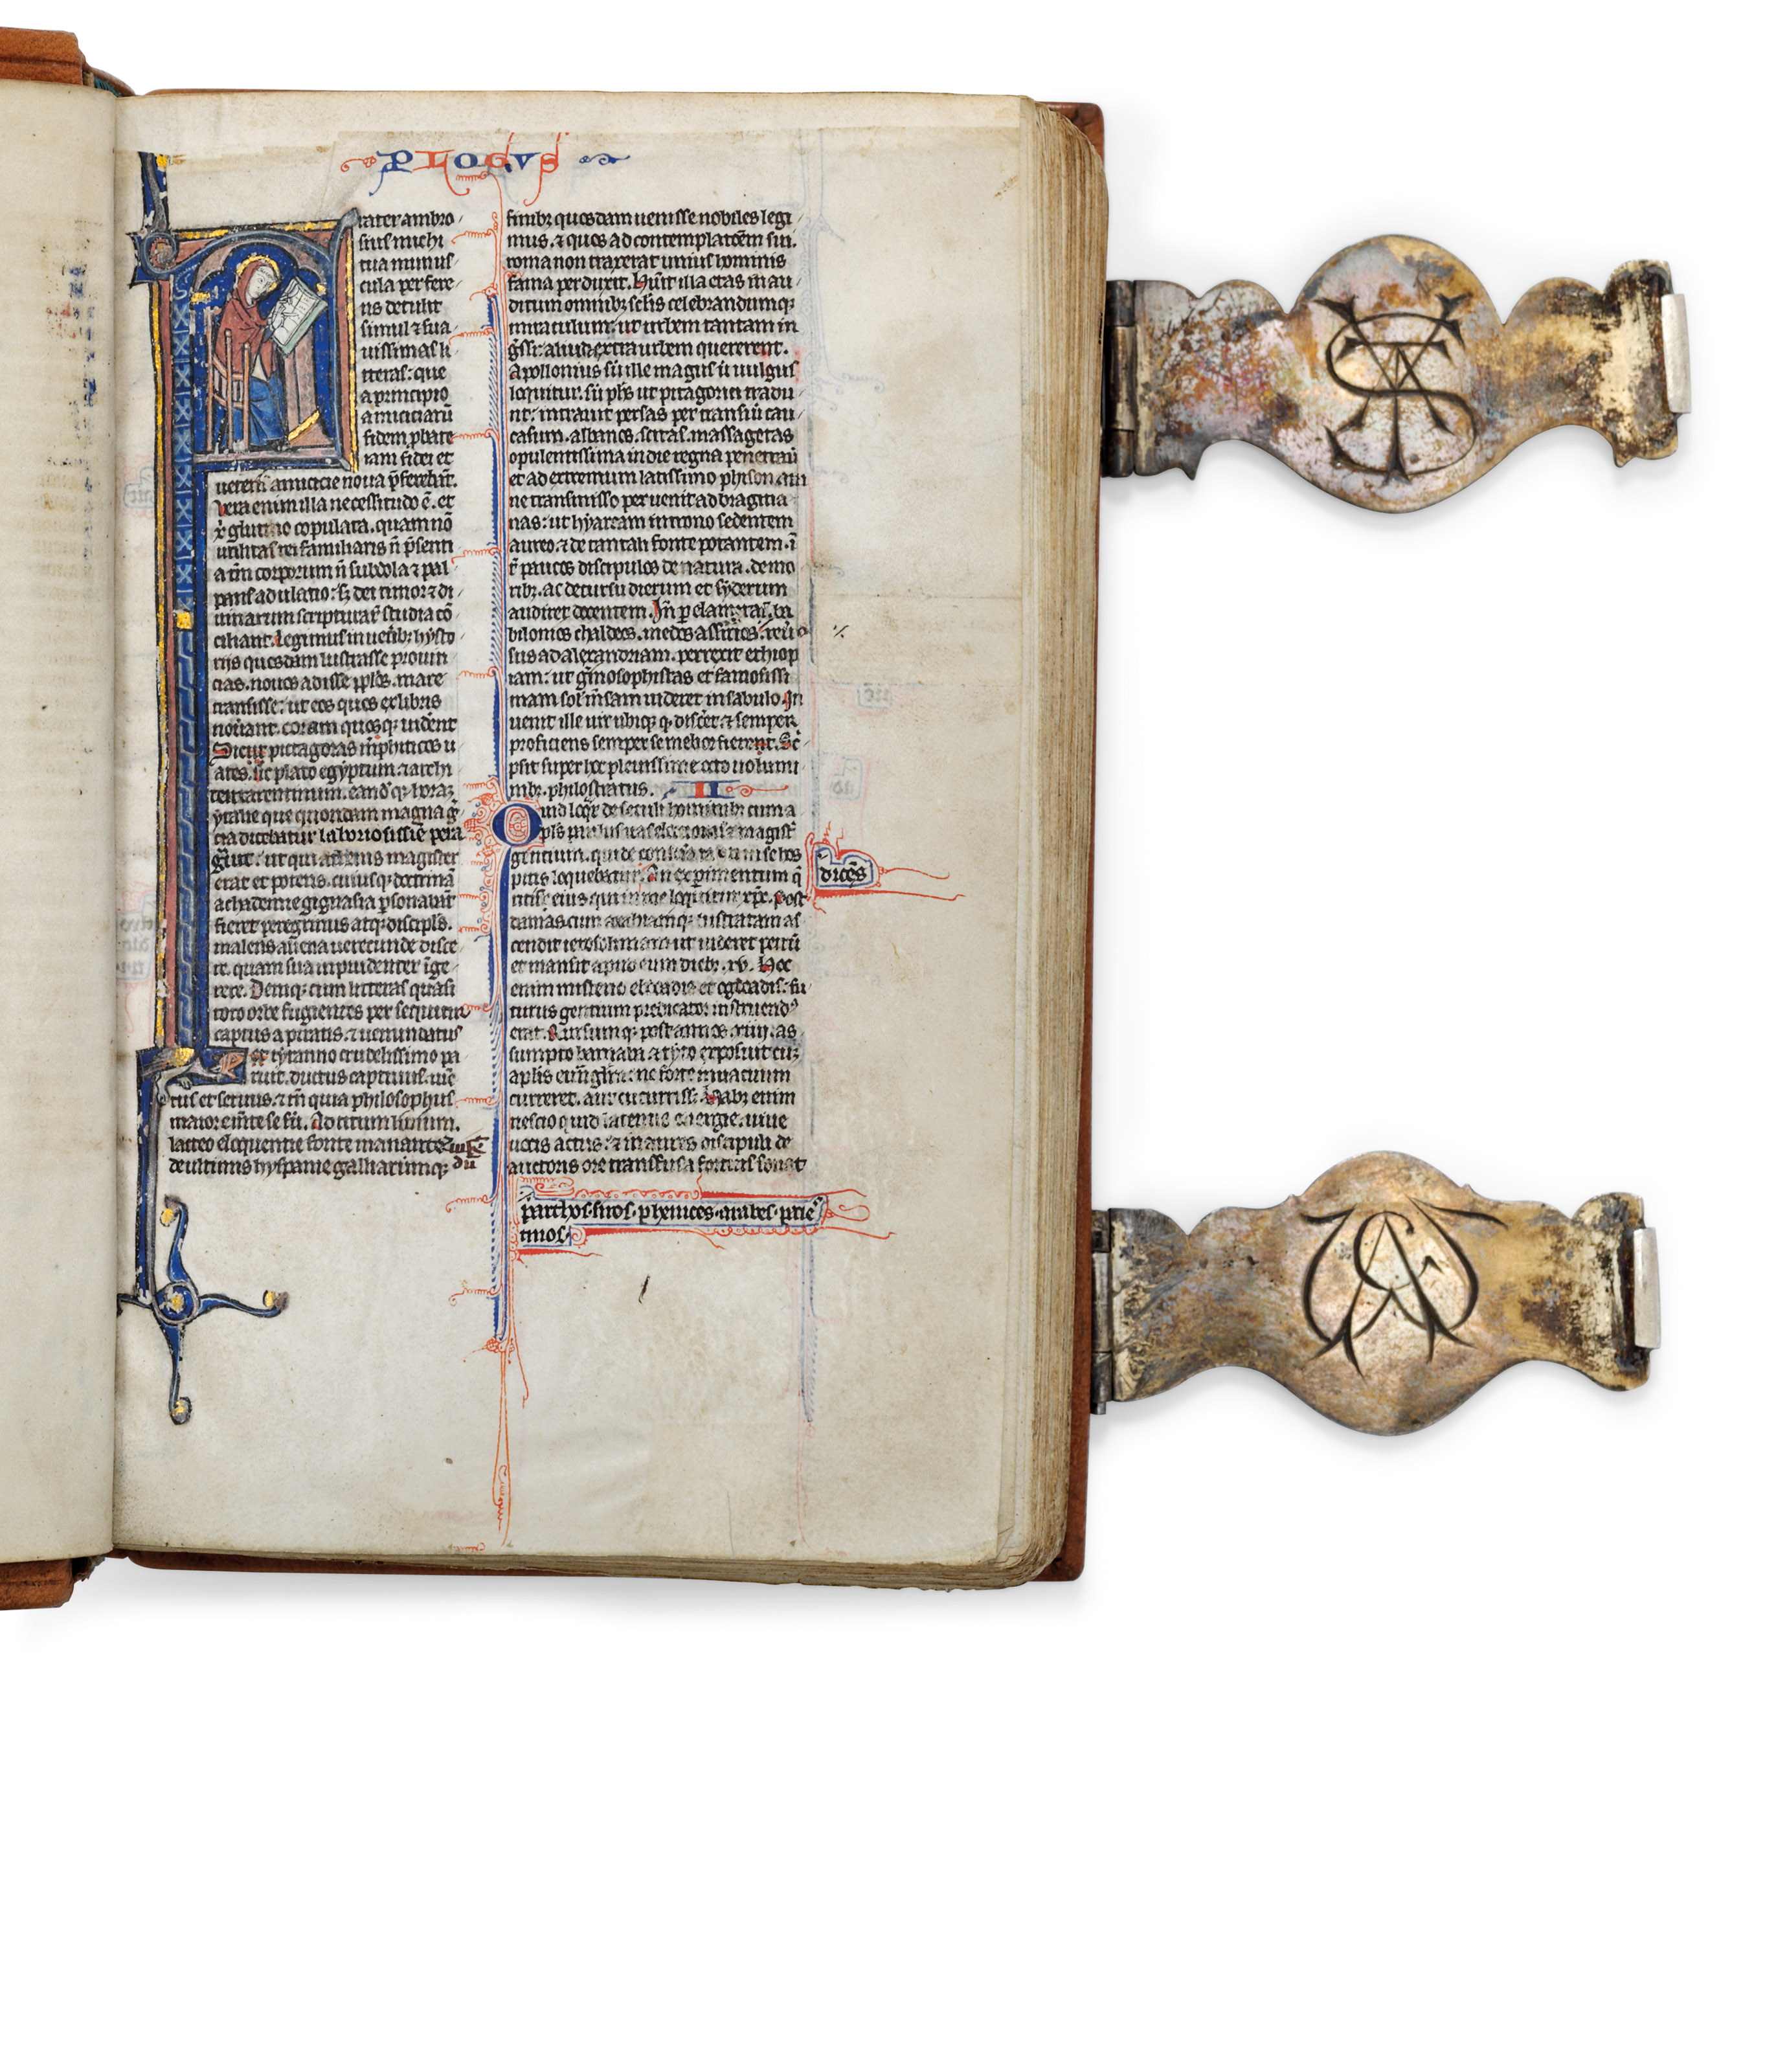 PLOGVS
rater ambro
sius michi
tua munus
cula per fere
ns detulit
simul ⁊ sua
uissimas li
tteras: que
a principio
amiciciarū
fidem ꝓbate
iam fidei et
ueteris amicicie noua p̄ferebāt.
Vera enim illa necessitudo ē. et
xp̄i glutino copulata. quam nō
utilitas rei familiaris n̄ p̄senti
a tm̄ corporum n̄ subdola ⁊ pal
pans adulatio: sꝫ dei timor ⁊ di
uinarum scripturaꝝ studia cō
ciliant. Legimus in ueteribꝫ hysto
rijs quosdam lustrasse prouin
cias. nouos adisse ppl̄os. mare
transisse: ut eos quos ex libris
nouerant. coram quoqꝫ uiderēt
Sicut pictagoras memphiticos u
ates. sic plato egyptum. ⁊ archi
tam tarentinum. eandēqꝫ horam
ytalie que quondam magna g̃
cia dicebatur laboriosissime pera
g̃uit: ut qui athenis magister
erat et potens. cuiusqꝫ doctrinā
achademie gignasia ꝑsonabāt
fieret peregrinus atqꝫ discipl̄s.
malens aliena uerecunde disce
re. quam sua inpudenter īge
rere. Deniqꝫ cum litteras quasi
toto orbe fugientes persequitur
captus a piratis. ⁊ uenundatus
et tyranno crudelissimo pa
ruit. ductus captiuus. uinc
tus et seruus. ⁊ tn̄ quia philosophus
maior emente se fuit. Ad titum liuium.
lacteo eloquentie fonte manante
de ultimis hyspanie galliarumqꝫ
finibꝫ quosdam uenisse nobiles legi
mus. ⁊ quos ad contemplatōem sui.
roma non traxerat unius hominis
fama perduxit. Habuit illa etas inau
ditum omnibꝫ sclis celebrandumqꝫ
miraculum: ut urbem tantam in
g̃ssi: aliud extra urbem quererent.
Apollonius siue ille magus ut uulgus
loquitur. siue phs̄ ut pitagorici tradu
nt: intrauit persas per transiuit cau
casum. albanos. scitas. massagetas
opulentissima indie regna penetrauit
et ad extremum latissimo phison am
ne transmisso peruenit ad bragma
nas: ut hyarcam in trono sedentem
aureo. ⁊ de tantali fonte potantem. ī
ter paucos discipulos de natura. de mo
ribꝫ. ac de cursu dierum et syderum
audiret docentem. In p elamitas. ba
bilonios chaldeos. medos assirios.
sus ad alexandriam. perrexit ethiop
iam: ut gimnosophistas et famosissi
mam solis mensam uideret in sabulo. In
uenit ille uir ubiqꝫ qd̄ disceret ⁊ semper
proficiens semper se melior fieret. Sc̄
psit super hoc plenissime octo uolumi
nibꝫ. philostratus. II
Quid loqr̄ de seculi hominibꝫ cum a
pl̄s paulus uas electionis ⁊ magist̄
gentium. qui de conscientia tanti in se hos
pitis loquebatur. An experimentum q̄
ritis eius qui in me loquitur xp̄c. post
damascum arabiamqꝫ lustratam as
cendit ierosolimam ut uideret petrū
et mansit apud eum diebꝫ. xv. Hoc
enim misterio ebdoadis et ogdoadis: fu
turus gentium predicator instruendꝰ
erat. Rursumqꝫ post annos. xiiij. as
sumpto barnaba ⁊ tyto exposuit cū
apl̄is euuanglm̄: ne forte in uacuum
curreret. aut cucurrisset. Habꝫ enim
nescio quid latentis energie. uiue
uocis actus: ⁊ in aures discipuli de
auctoris ore transfusa fortius sonat
dicēs
parthos. siros. phenices. arabes. pale
tinos.